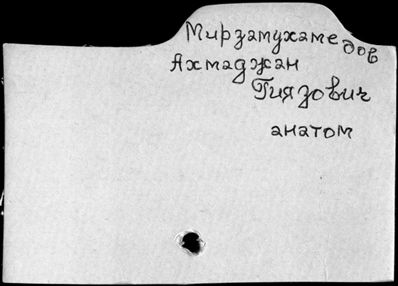 Мирзамухамедов
Ахмаджан
Гиязович
анатом